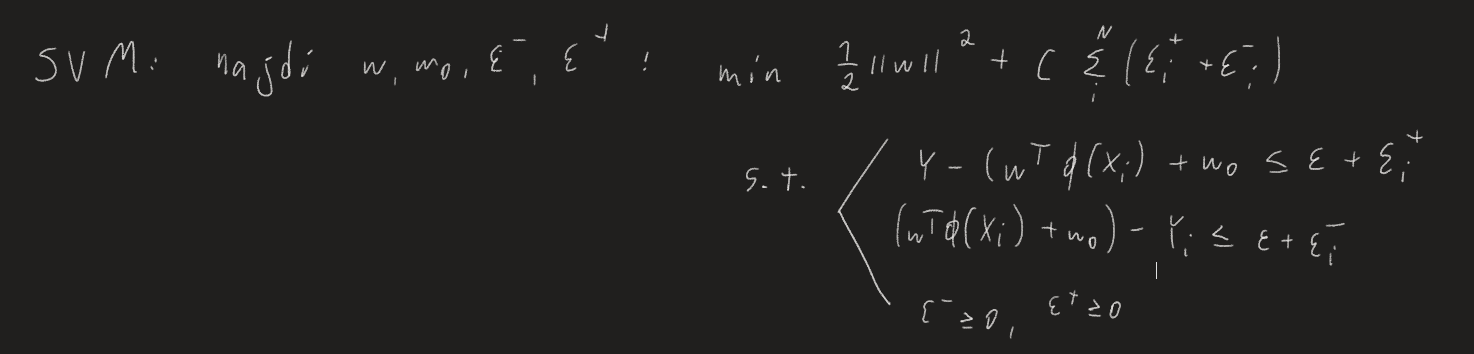 SVM: najdi w, w₀, ε⁻, ε⁺ : min ½ ||w||² + C Σᵢᴺ (ξᵢ⁺ + ξᵢ⁻)
s.t. Y - (wᵀ ϕ(xᵢ) + w₀ ≤ ε + ξᵢ⁺
(wᵀϕ(xᵢ) + w₀) - Yᵢ ≤ ε + ξᵢ⁻
ξ⁻ ≥ 0, ξ⁺ ≥ 0